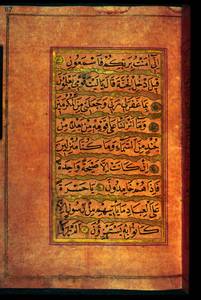 إني آمنت بربكم فاسمعون
قيل ادخل الجنة قال يا ليت قومي يعلمون
بما غفر لي ربي وجعلني من المكرمين
وما أنزلنا على قومه من بعده من
جند من السماء وما كنا منزلين
إن كانت إلا صيحة واحدة
فإذا هم خامدون يا حسرة
على العباد ما يأتيهم من رسول إلا
كانوا به يستهزؤن ألم يروا